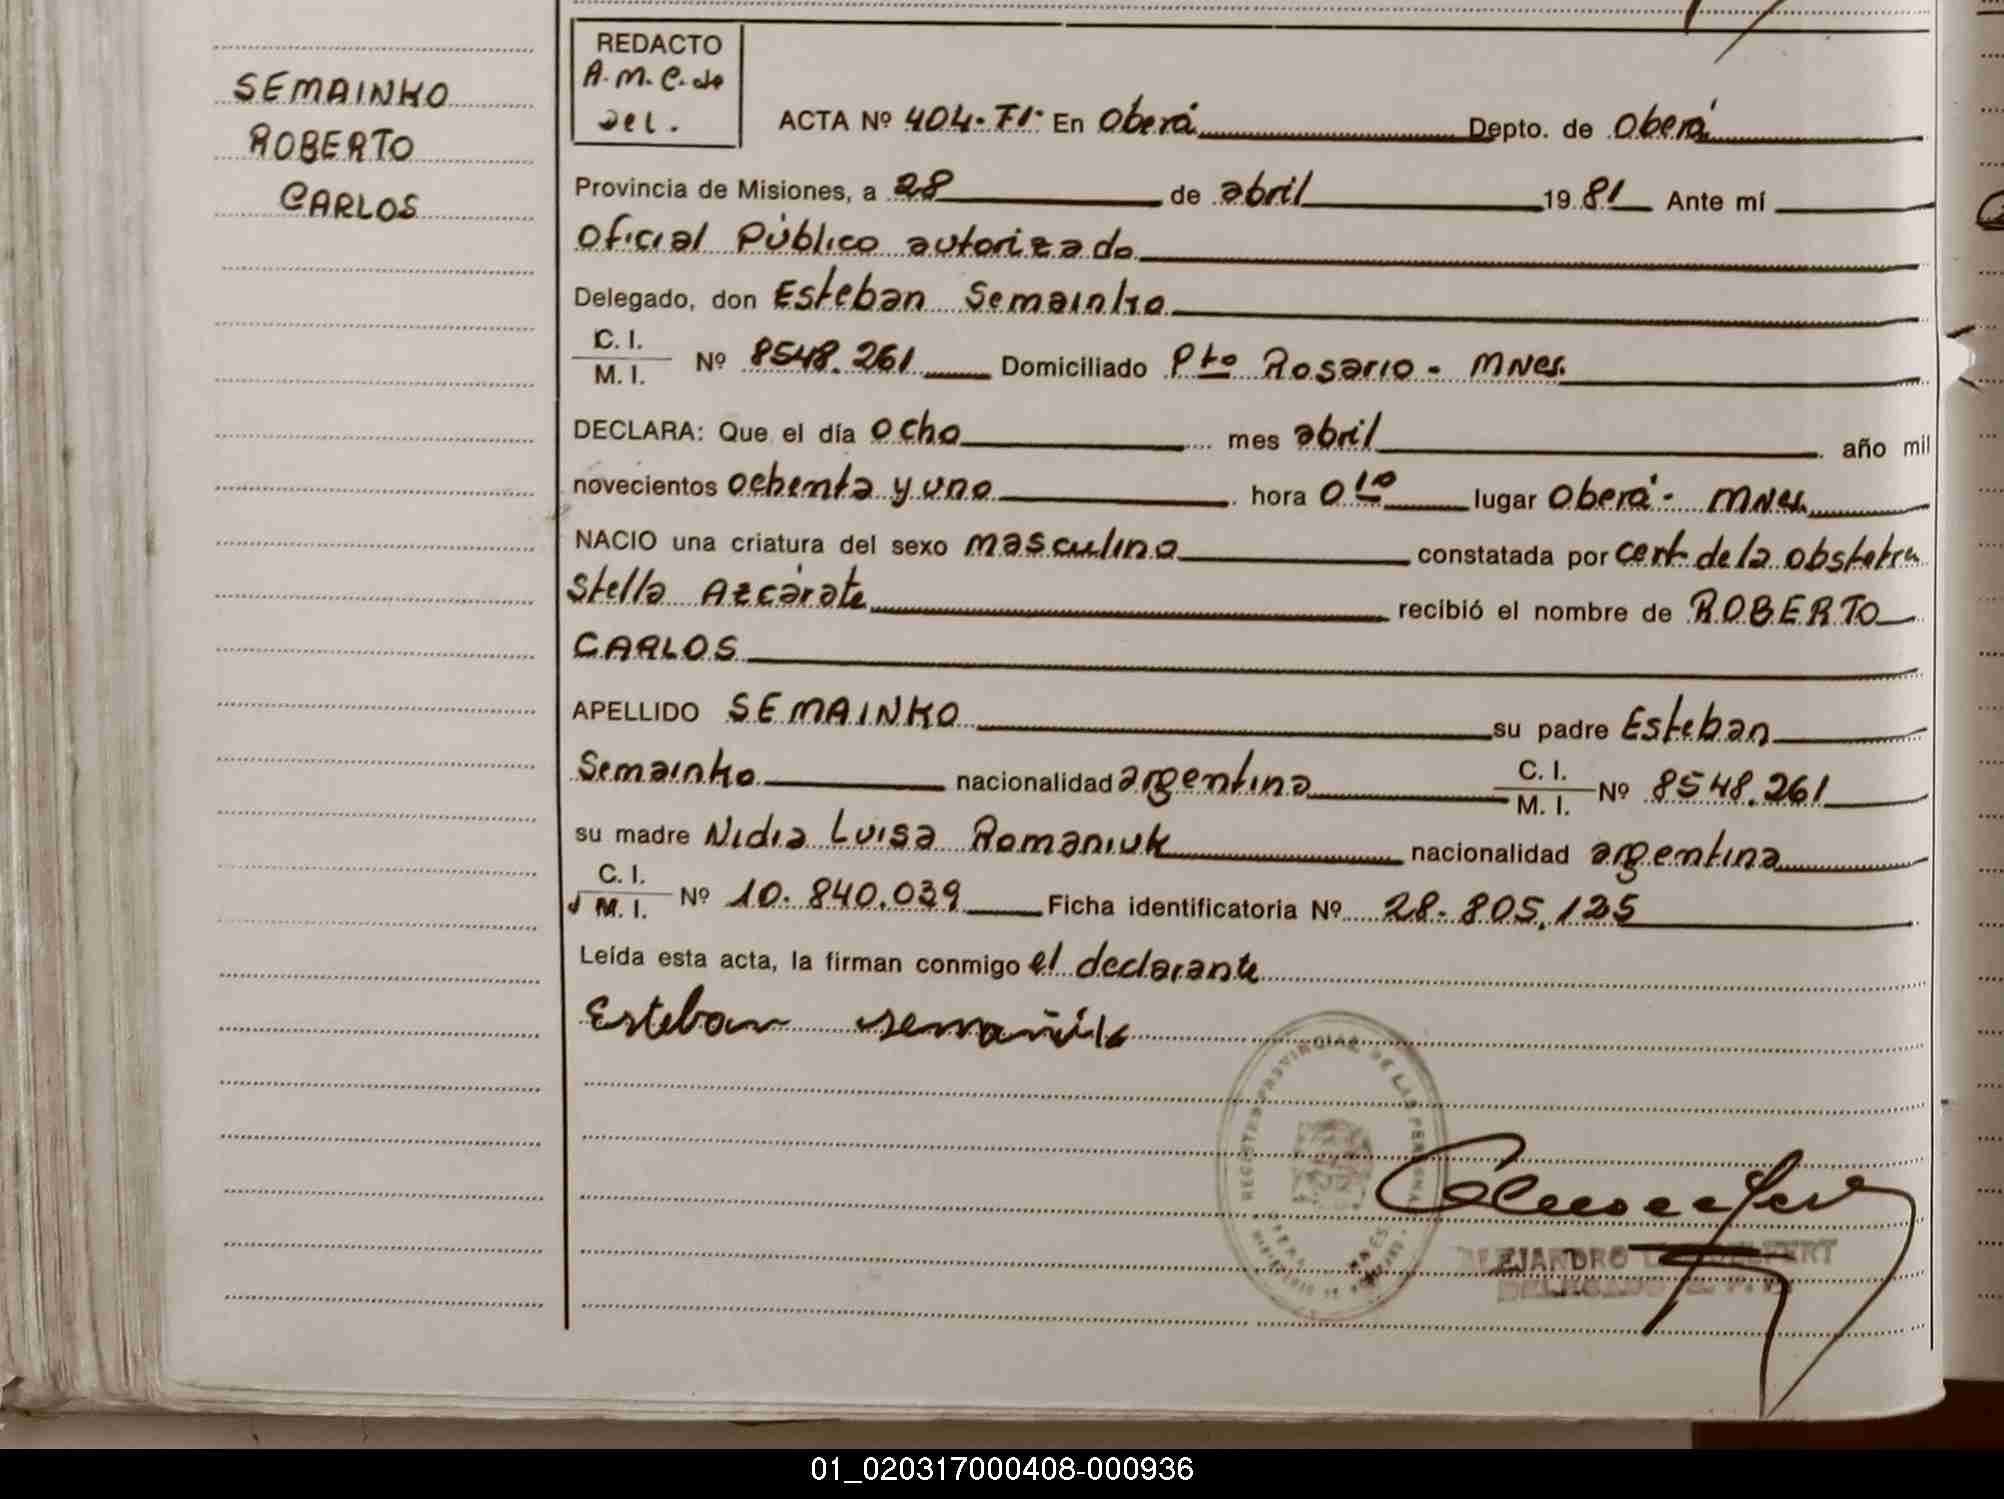 SEMAINKO
ROBERTO
CARLOS
REDACTO
A.M.C. de
Del.
ACTA Nº 404-Tº I En Oberá Depto. de Oberá
Provincia de Misiones, a 28 de abril 1981 Ante mí
Oficial Público autorizado
Delegado, don Esteban Semainko
C. I.
M. I. Nº 8548.261 Domiciliado Pto Rosario - MNes.
DECLARA: Que el día ocho mes abril año mil
novecientos ochenta y uno hora 0 10 lugar Oberá - MNes.
NACIO una criatura del sexo masculino constatada por cert de la obstetra
Stella Azcárate recibió el nombre de ROBERTO
CARLOS
APELLIDO SEMAINKO su padre Esteban
Semainko nacionalidad argentina C. I. M. I. Nº 8548.261
su madre Nidia Luisa Romaniuk nacionalidad argentina
C. I.
M. I. Nº 10.840.039 Ficha identificatoria Nº 28.805.125
Leída esta acta, la firman conmigo el declarante
Esteban
REGISTRO PROVINCIAL DE LAS PERSONAS
ALEJANDRO
DELEGADO
01_020317000408-000936